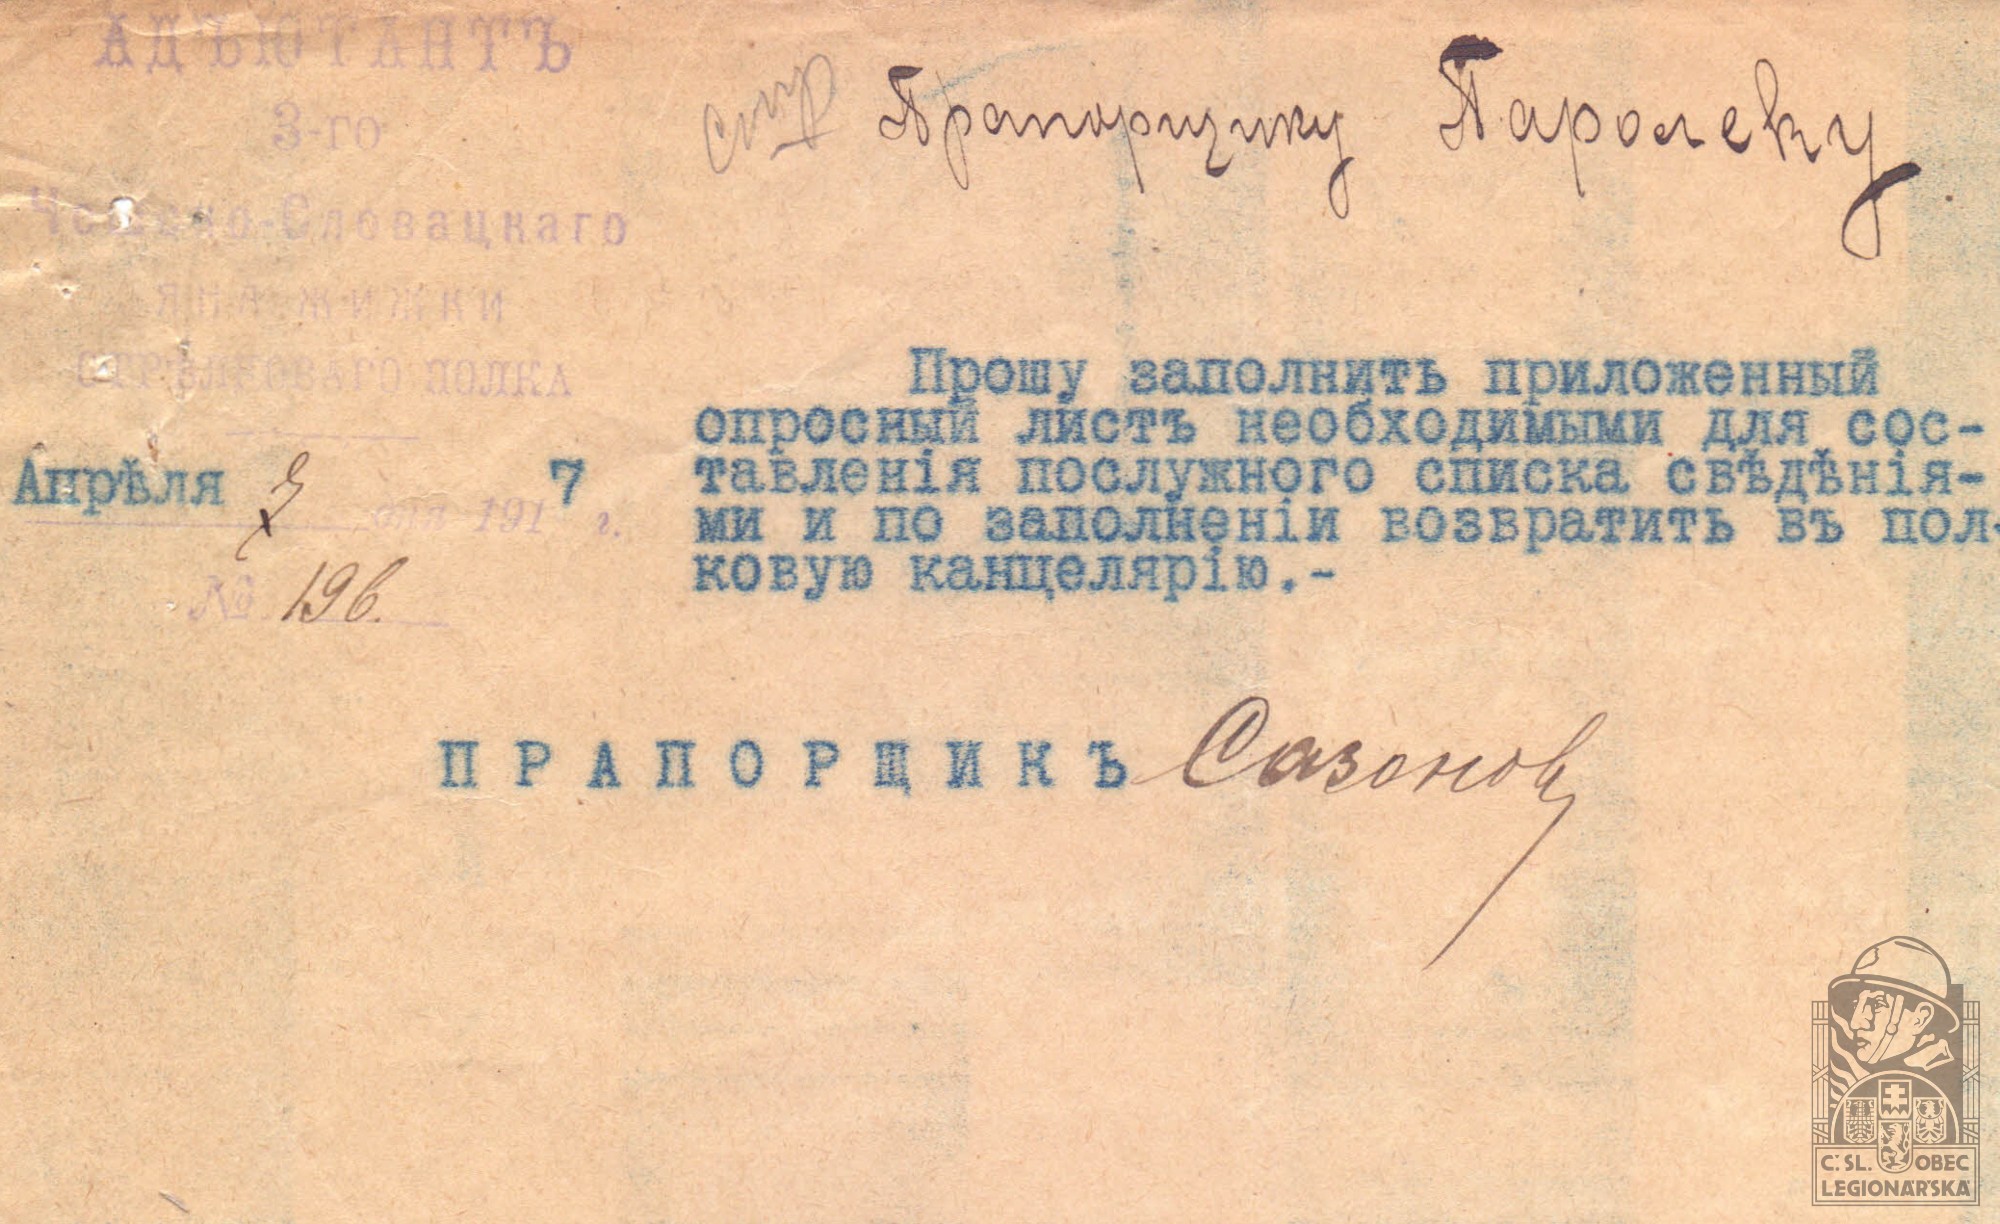 АДЪЮТАНТЪ
3-го
Чешско-Словацкаго
ЯНА ЖИЖКИ
СТРѢЛКОВАГО ПОЛКА
Апрѣля дня 1917 г.
№ 196.
Прапорщику Паролеку
Прошу заполнить приложенный
опросный листъ необходимыми для сос-
тавленія послужного списка свѣдѣнія-
ми и по заполненіи возвратить въ пол-
ковую канцелярію.-
ПРАПОРЩИКЪ Сазонов
Č.SL. OBEC
LEGIONÁŘSKÁ